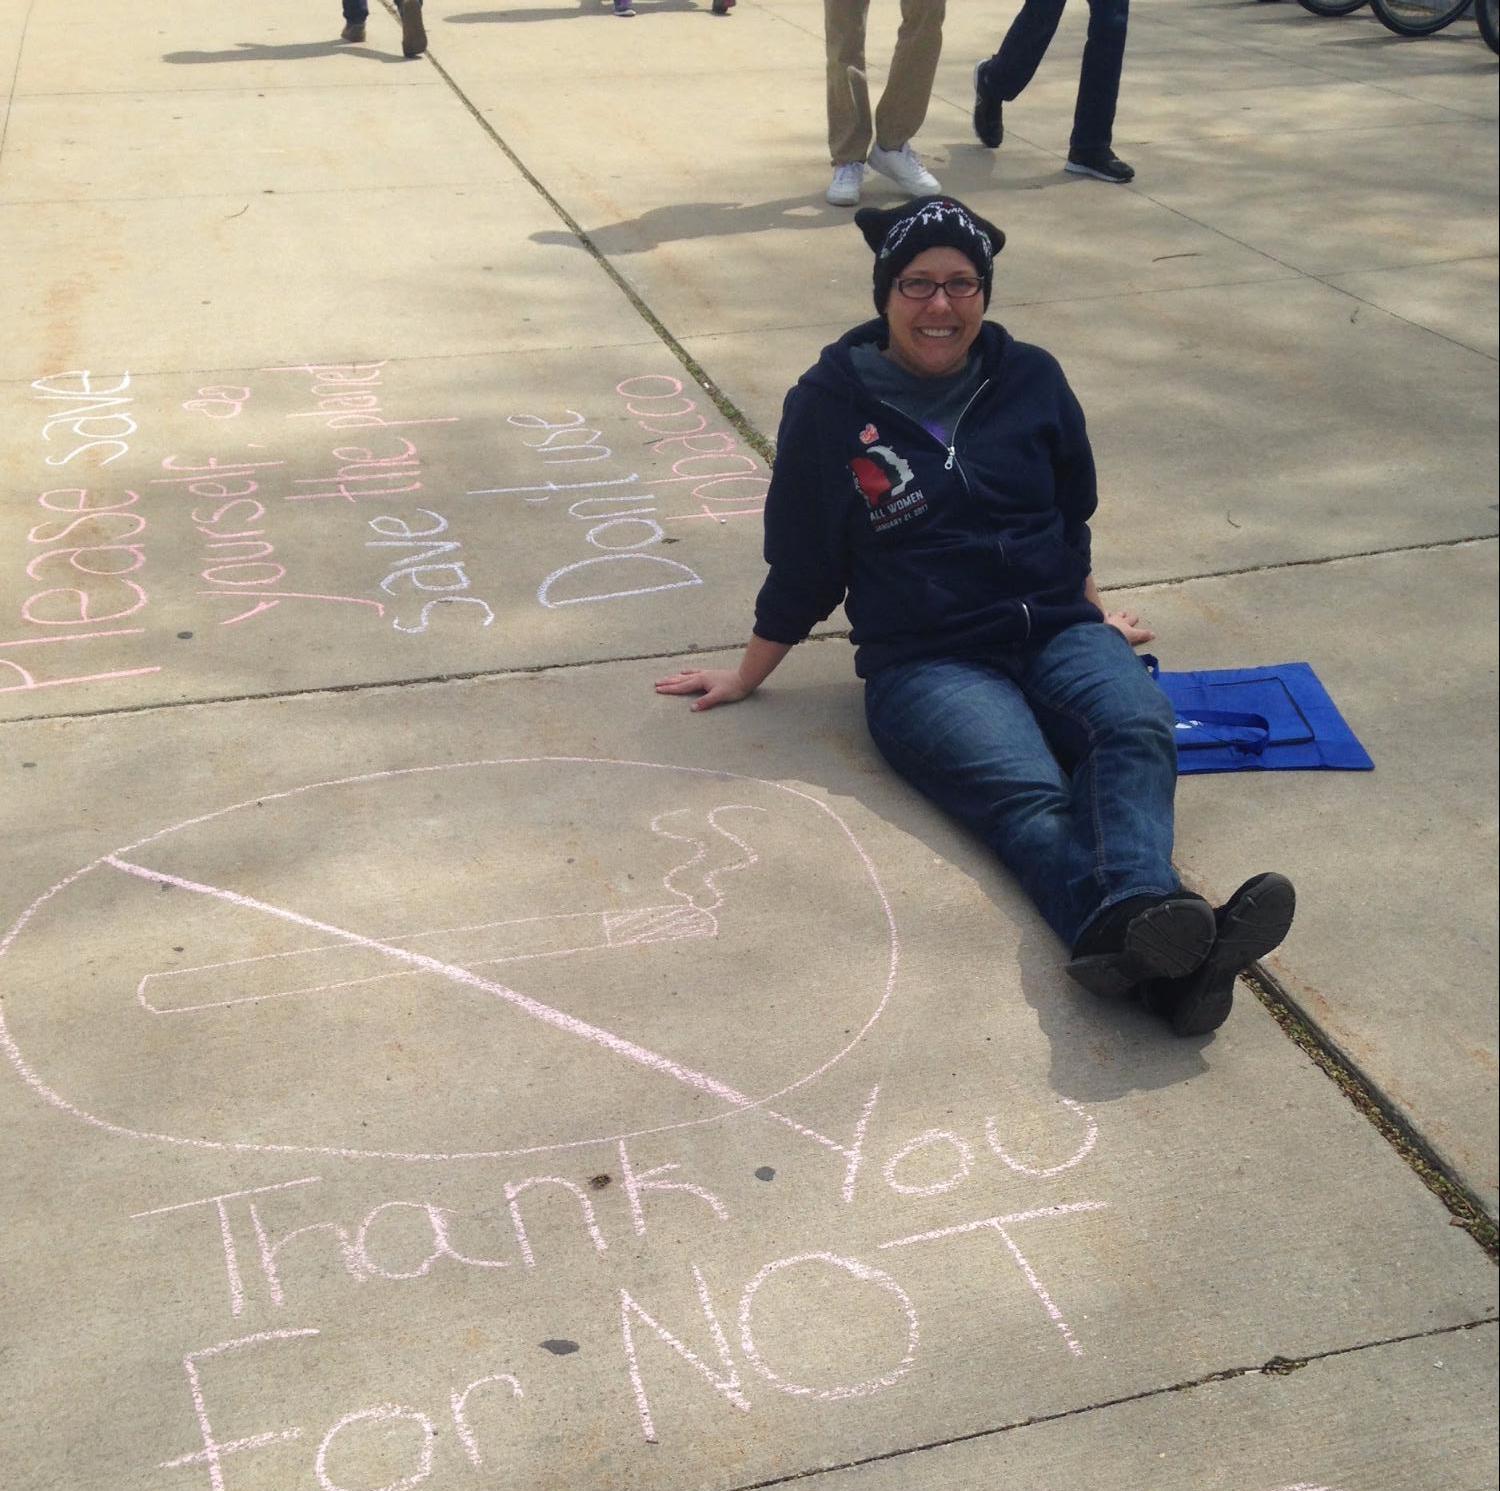 Please save
yourself, &
save the planet
Don't use
tobacco
ALL WOMEN
JANUARY 21, 2017
Thank You
For NOT